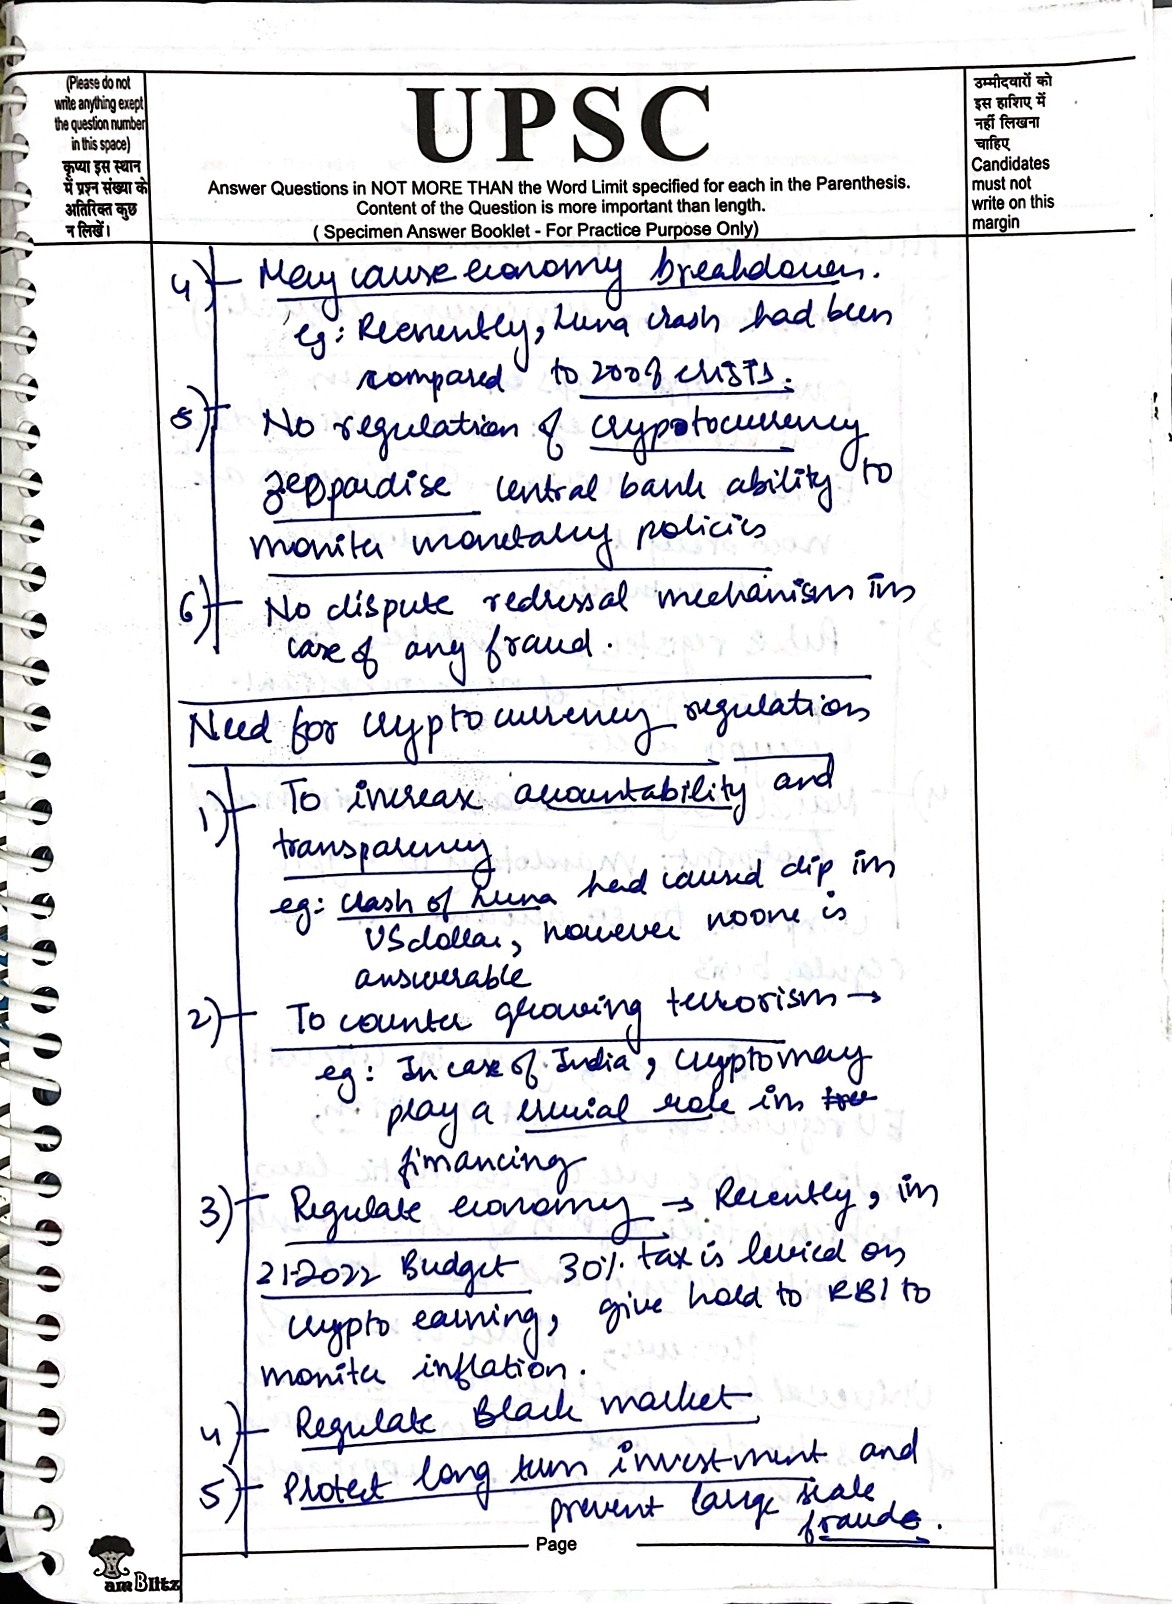 (Please do not
write anything exept
the question number
in this space)
कृप्या इस स्थान
में प्रश्न संख्या के
अतिरिक्त कुछ
न लिखें।
UPSC
Answer Questions in NOT MORE THAN the Word Limit specified for each in the Parenthesis.
Content of the Question is more important than length.
( Specimen Answer Booklet - For Practice Purpose Only)
उम्मीदवारों को
इस हाशिए में
नहीं लिखना
चाहिए
Candidates
must not
write on this
margin
4) May cause economy breakdown.
eg: Recenently, Luna crash had been
compared to 2008 crisis.
5) No regulation of cryptocurrency
jeopardise central bank ability to
monitor monetary policies
6) No dispute redressal mechanism in
case of any fraud.
Need for cryptocurrency regulation
1) To increase accountability and
transparency
eg: Crash of Luna had caused dip in
US dollar, however noone is
answerable
2) To counter growing terrorism →
eg: In case of India, crypto may
play a crucial role in
financing
3) Regulate economy → Recently, in
21-2022 Budget 30% tax is levied on
crypto earning, give hold to RBI to
monitor inflation.
4) Regulate Black market
5) Protect long term investment and
prevent large scale
frauds.
Page
amBlitz